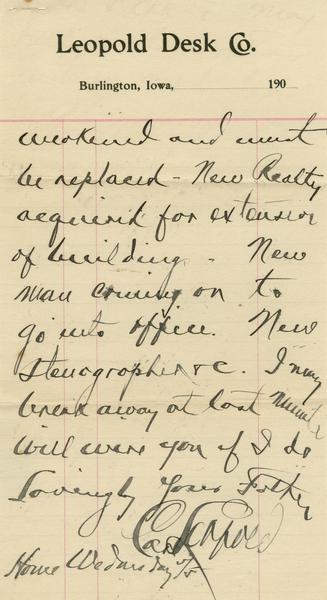 Leopold Desk Co.
Burlington, Iowa, 190
weakened and must
be replaced - New Realty
acquired for extension
of building. - New
man coming on to
go into office. New
Stenographer &c. I may
break away at last minute
will wire you if I do
Lovingly Your Father
Carl Leopold
Home Wednesday